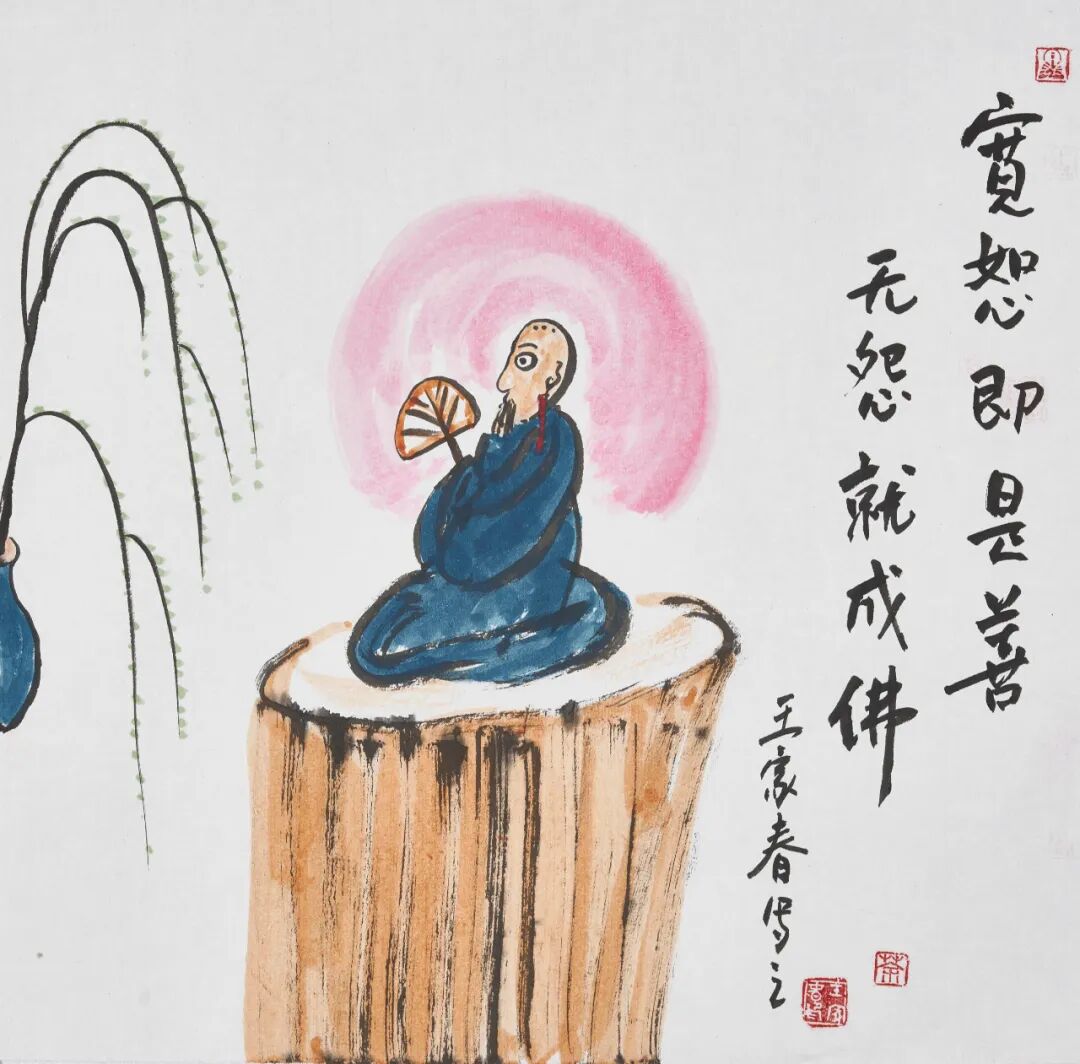 寬恕即是善
无怨就成佛
王家春写之